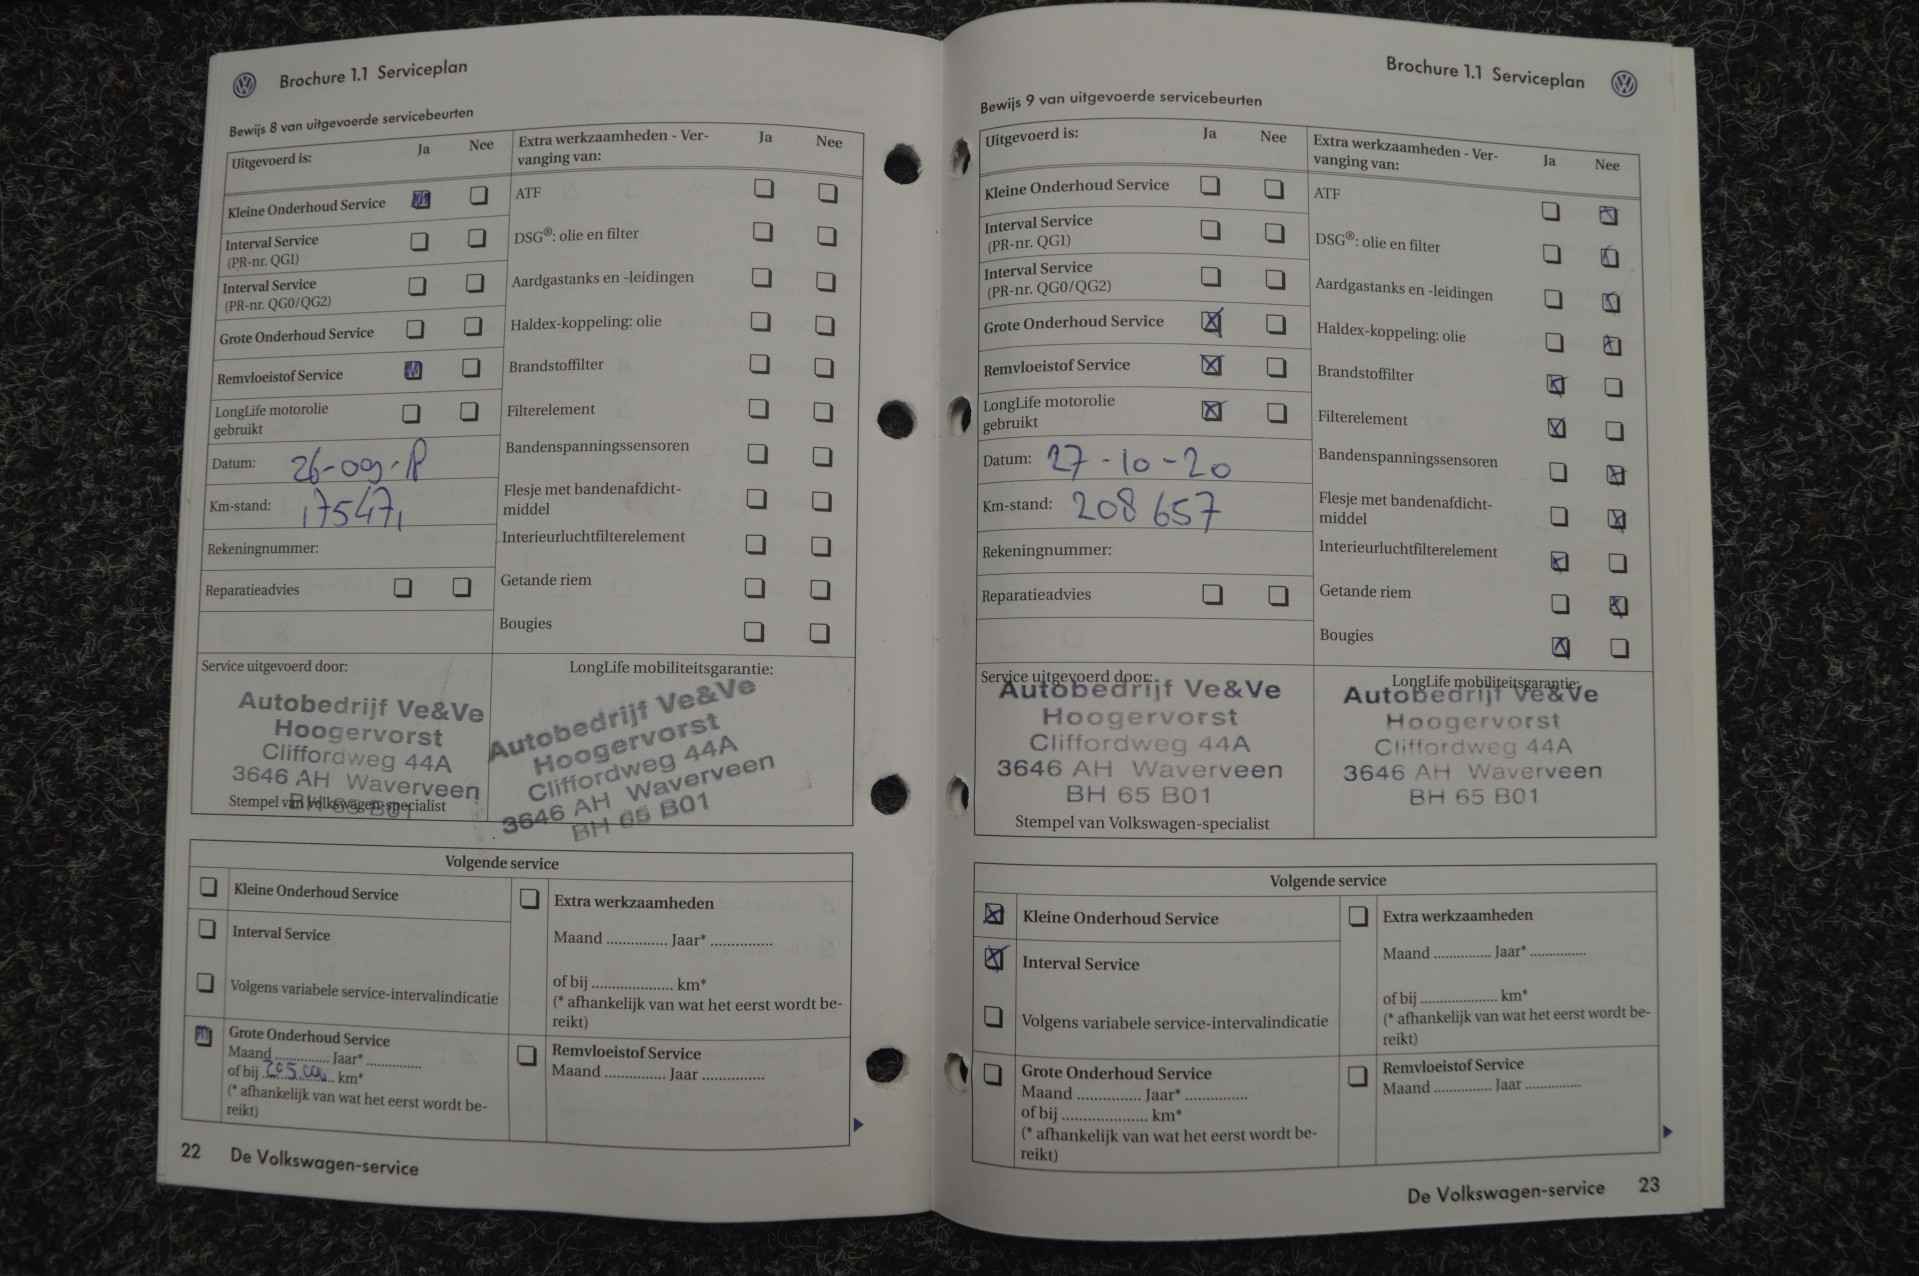 Brochure 1.1 Serviceplan
Bewijs 8 van uitgevoerde servicebeurten
Uitgevoerd is: Ja Nee
Kleine Onderhoud Service
Interval Service
(PR-nr. QG1)
Interval Service
(PR-nr. QG0/QG2)
Grote Onderhoud Service
Remvloeistof Service
LongLife motorolie
gebruikt
Datum: 26-09-18
Km-stand: 175471
Rekeningnummer:
Reparatieadvies
Extra werkzaamheden - Ver- Ja Nee
vanging van:
ATF
DSG®: olie en filter
Aardgastanks en -leidingen
Haldex-koppeling: olie
Brandstoffilter
Filterelement
Bandenspanningssensoren
Flesje met bandenafdicht-
middel
Interieurluchtfilterelement
Getande riem
Bougies
Service uitgevoerd door:
Autobedrijf Ve&Ve
Hoogervorst
Cliffordweg 44A
3646 AH Waverveen
BH 65 B01
Stempel van Volkswagen-specialist
LongLife mobiliteitsgarantie:
Autobedrijf Ve&Ve
Hoogervorst
Cliffordweg 44A
3646 AH Waverveen
BH 65 B01
Volgende service
Kleine Onderhoud Service
Interval Service
Volgens variabele service-intervalindicatie
Grote Onderhoud Service
Maand .............. Jaar* ..............
of bij 205.000 km*
(* afhankelijk van wat het eerst wordt be-
reikt)
Extra werkzaamheden
Maand ............... Jaar* ...............
of bij .................... km*
(* afhankelijk van wat het eerst wordt be-
reikt)
Remvloeistof Service
Maand ............... Jaar ...............
22 De Volkswagen-service
Brochure 1.1 Serviceplan
Bewijs 9 van uitgevoerde servicebeurten
Uitgevoerd is: Ja Nee
Kleine Onderhoud Service
Interval Service
(PR-nr. QG1)
Interval Service
(PR-nr. QG0/QG2)
Grote Onderhoud Service
Remvloeistof Service
LongLife motorolie
gebruikt
Datum: 27-10-20
Km-stand: 208657
Rekeningnummer:
Reparatieadvies
Extra werkzaamheden - Ver- Ja Nee
vanging van:
ATF
DSG®: olie en filter
Aardgastanks en -leidingen
Haldex-koppeling: olie
Brandstoffilter
Filterelement
Bandenspanningssensoren
Flesje met bandenafdicht-
middel
Interieurluchtfilterelement
Getande riem
Bougies
Service uitgevoerd door:
Autobedrijf Ve&Ve
Hoogervorst
Cliffordweg 44A
3646 AH Waverveen
BH 65 B01
Stempel van Volkswagen-specialist
LongLife mobiliteitsgarantie:
Autobedrijf Ve&Ve
Hoogervorst
Cliffordweg 44A
3646 AH Waverveen
BH 65 B01
Volgende service
Kleine Onderhoud Service
Interval Service
Volgens variabele service-intervalindicatie
Grote Onderhoud Service
Maand ................ Jaar* ................
of bij ...................... km*
(* afhankelijk van wat het eerst wordt be-
reikt)
Extra werkzaamheden
Maand .............. Jaar* ..............
of bij .................... km*
(* afhankelijk van wat het eerst wordt be-
reikt)
Remvloeistof Service
Maand .............. Jaar ..............
De Volkswagen-service 23